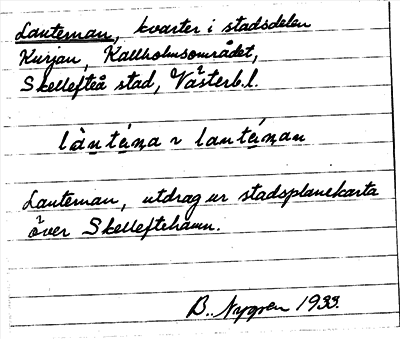 Lanternan, kvarter i stadsdelen
Kurjan, Kallholmsområdet,
Skellefteå stad, Västerb.l.
làntèna ~ lantéṇan
Lanternan, utdrag ur stadsplanekarta
över Skelleftehamn.
B. Nygren 1933.